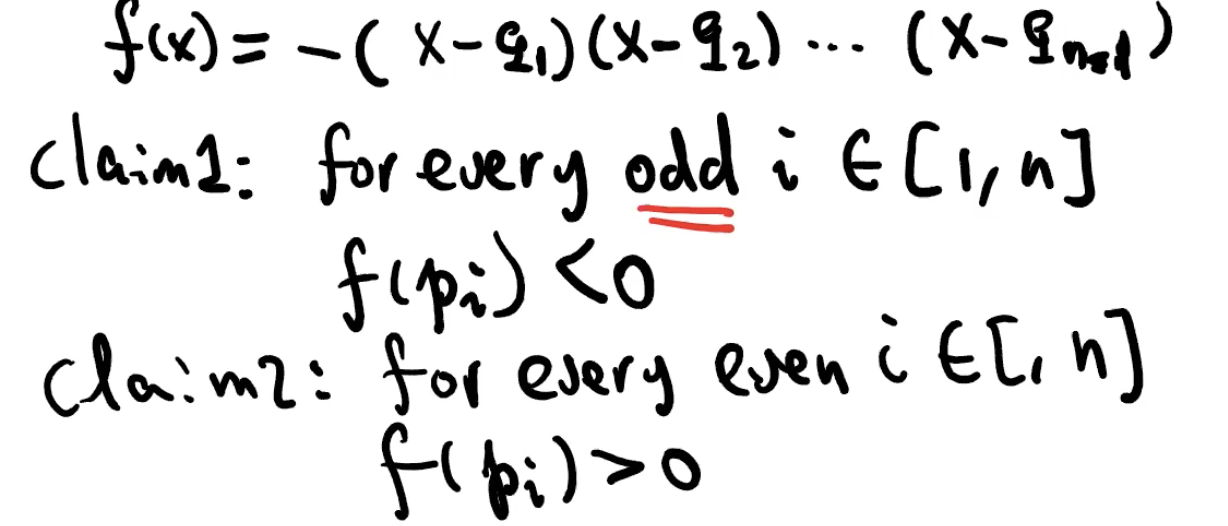 f(x) = -(x-q₁)(x-q₂) ... (x-qₙ₋₁)
claim1: for every odd i ∈ [1, n]
f(pᵢ) < 0
claim2: for every even i ∈ [, n]
f(pᵢ) > 0